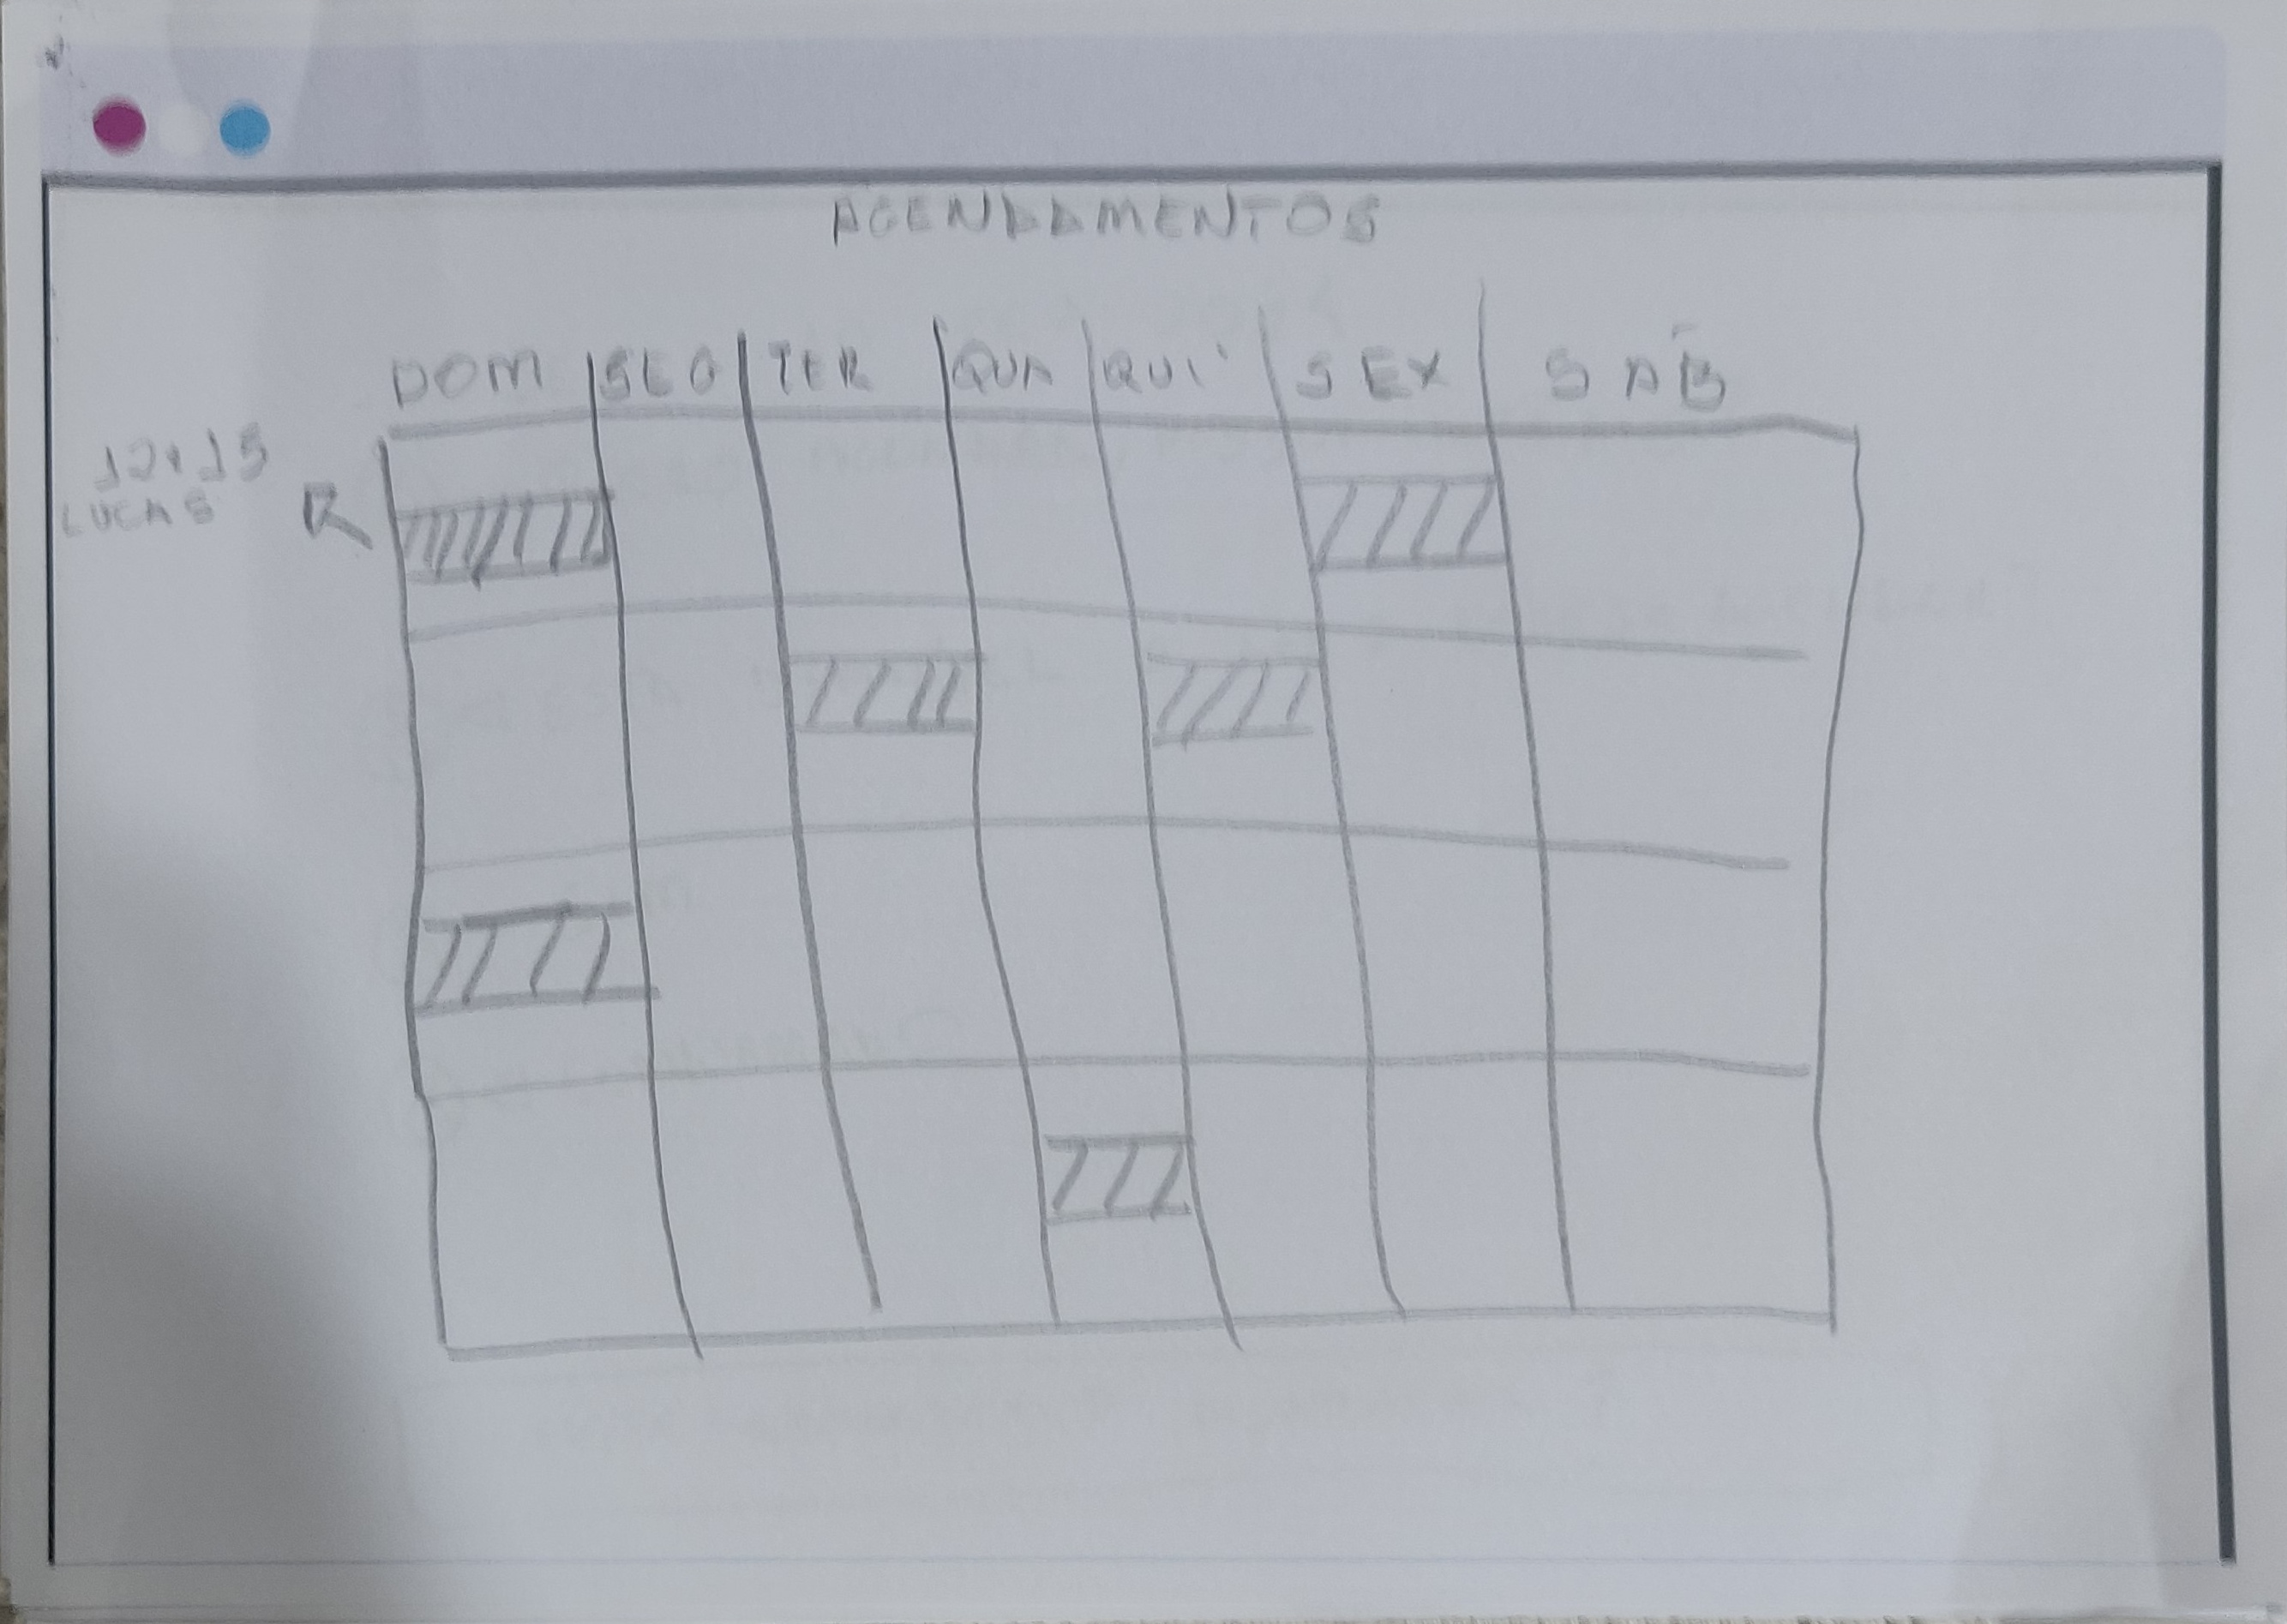 AGENDAMENTOS
DOM SEG TER QUA QUI SEX SÁB
12:15
LUCAS